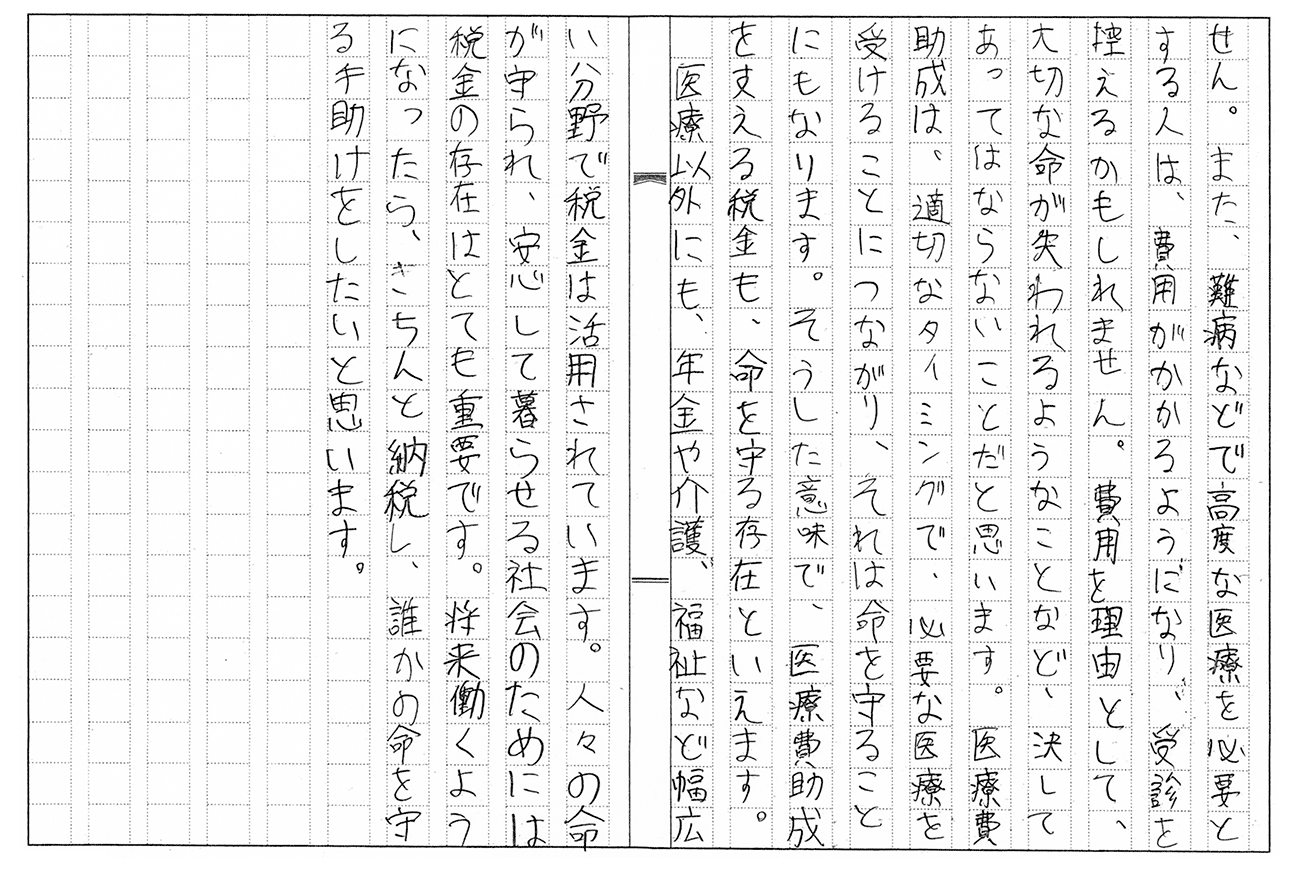 せん。また、難病などで高度な医療を必要と
する人は、費用がかかるようになり、受診を
控えるかもしれません。費用を理由として、
大切な命が失われるようなことなど、決して
あってはならないことだと思います。医療費
助成は、適切なタイミングで、必要な医療を
受けることにつながり、それは命を守ること
にもなります。そうした意味で、医療費助成
を支える税金も、命を守る存在といえます。
　医療以外にも、年金や介護、福祉など幅広
い分野で税金は活用されています。人々の命
が守られ、安心して暮らせる社会のためには
税金の存在はとても重要です。将来働くよう
になったら、きちんと納税し、誰かの命を守
る手助けをしたいと思います。